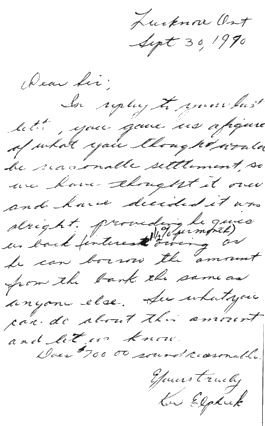 Lucknow Ont
Sept 30, 1990
Dear Sir;
In reply to your last
lett, you gave us a figure
of what you thought would
be reasonable settlement, so
we have thought it over
and have decided it was
alright. providing he gives
us back interest owing or
he can borrow the amount
from the bank the same as
anyone else. See what you
can do about this amount
and let us know.
Does $700 00 sound reasonable.
Yours truly